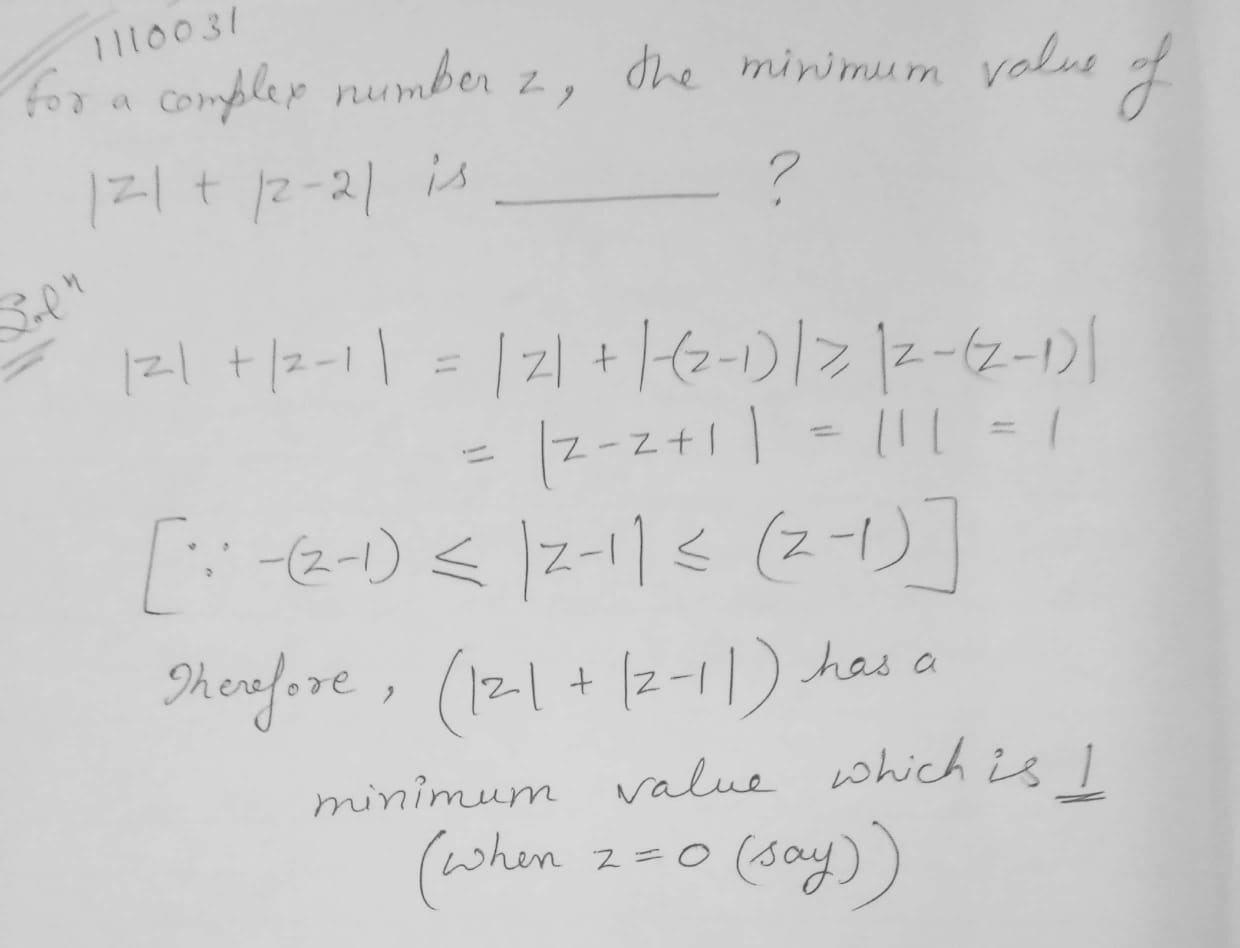 1110031
for a complex number z, the minimum value of
|z| + |z-2| is ______ ?
Solⁿ
|z| + |z-1| = |z| + |-(z-1)| ≥ |z-(z-1)|
= |z-z+1| = |1| = 1
[∵ -(z-1) ≤ |z-1| ≤ (z-1)]
Therefore, (|z| + |z-1|) has a
minimum value which is 1
(when z=0 (say))